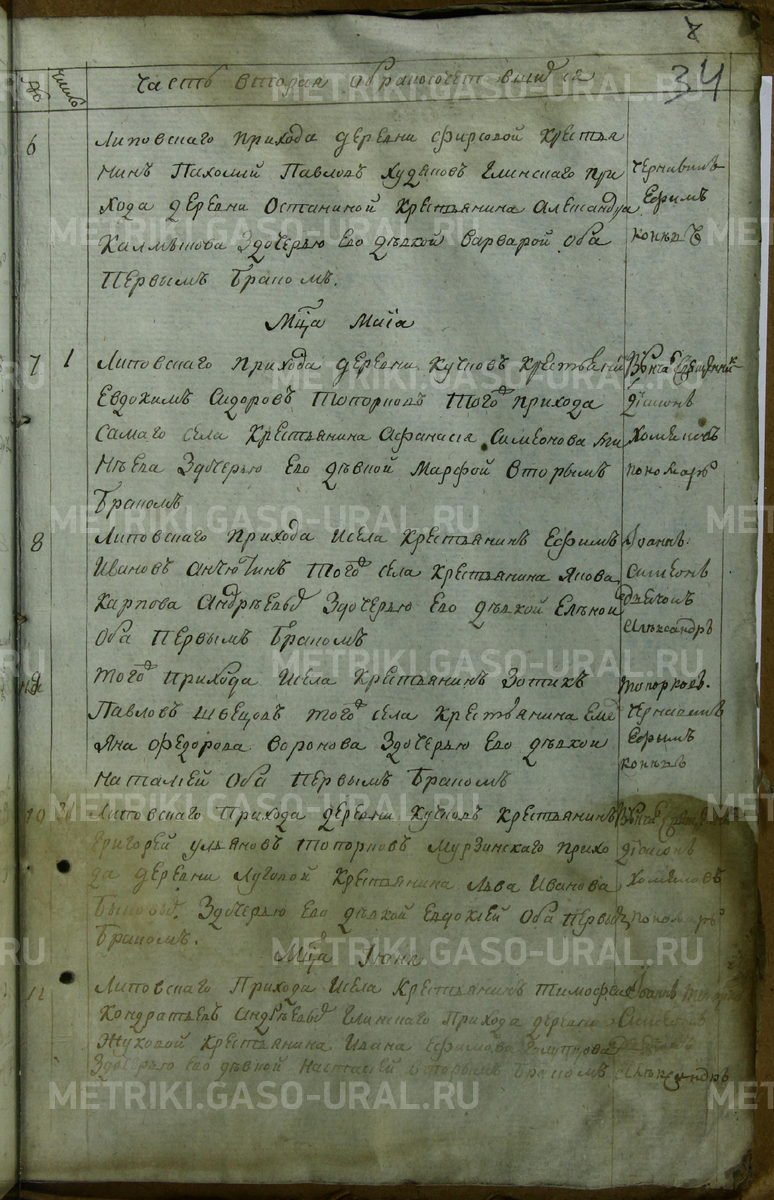 34
№ число Часть вторая о бракосочетавшихся
6 Липовскаго прихода деревни Фирсовой крестья
нинъ Пахомий Павловъ Худяковъ Глинскаго при
хода деревни Останиной крестьянина Александра
Калмыкова здочерью ево девкой Варварой оба
первымъ бракомъ.
Чернавинъ
Ефимъ
конецъ
Мца Маїа
7 1 Липовскаго прихода деревни Кучковъ крестьянин
Евдокимъ Сидоровъ Топорковъ того прихода
самаго села крестьянина Афанасия Симеонова
здочерью ево девкой Марфой вторымъ
бракомъ
Венча Священник
Диакон
Хомяковъ
пономарь
8 Липовскаго прихода и села крестьянинъ Ефимъ
Ивановъ того села крестьянина Якова
Карпова Андреевыхъ здочерью ево девкой Еленой
оба первымъ бракомъ
Іоаннъ
Симеонъ
дьячокъ
Александръ
того прихода и села крестьянинъ Зотикъ
Павловъ Швецовъ того села крестьянина Еме
лiяна Федорова Воронова здочерью ево девкой
Наталией оба первымъ бракомъ
Топорковъ
Чернавинъ
Ефимъ
конецъ
10 Липовскаго прихода деревни Кучковъ крестьянинъ
Григорей Ульяновъ Топорковъ Мурзинскаго прихо
да деревни Луговой крестьянина Льва Иванова
Быковыхъ здочерью ево девкой Евдокией оба первымъ
бракомъ.
Венча Священник
Диаконъ
Хомяковъ
пономарь
Мца Іюня
11 Липовскаго прихода и села крестьянинъ Тимофей
Кондратьевъ Андреевыхъ Глинскаго прихода деревни
Жуковой крестьянина Ивана Ефимова
здочерью ево девкой Настасией вторымъ бракомъ
Іоаннъ
Симеонъ
Александръ
METRIKI.GASO-URAL.RU